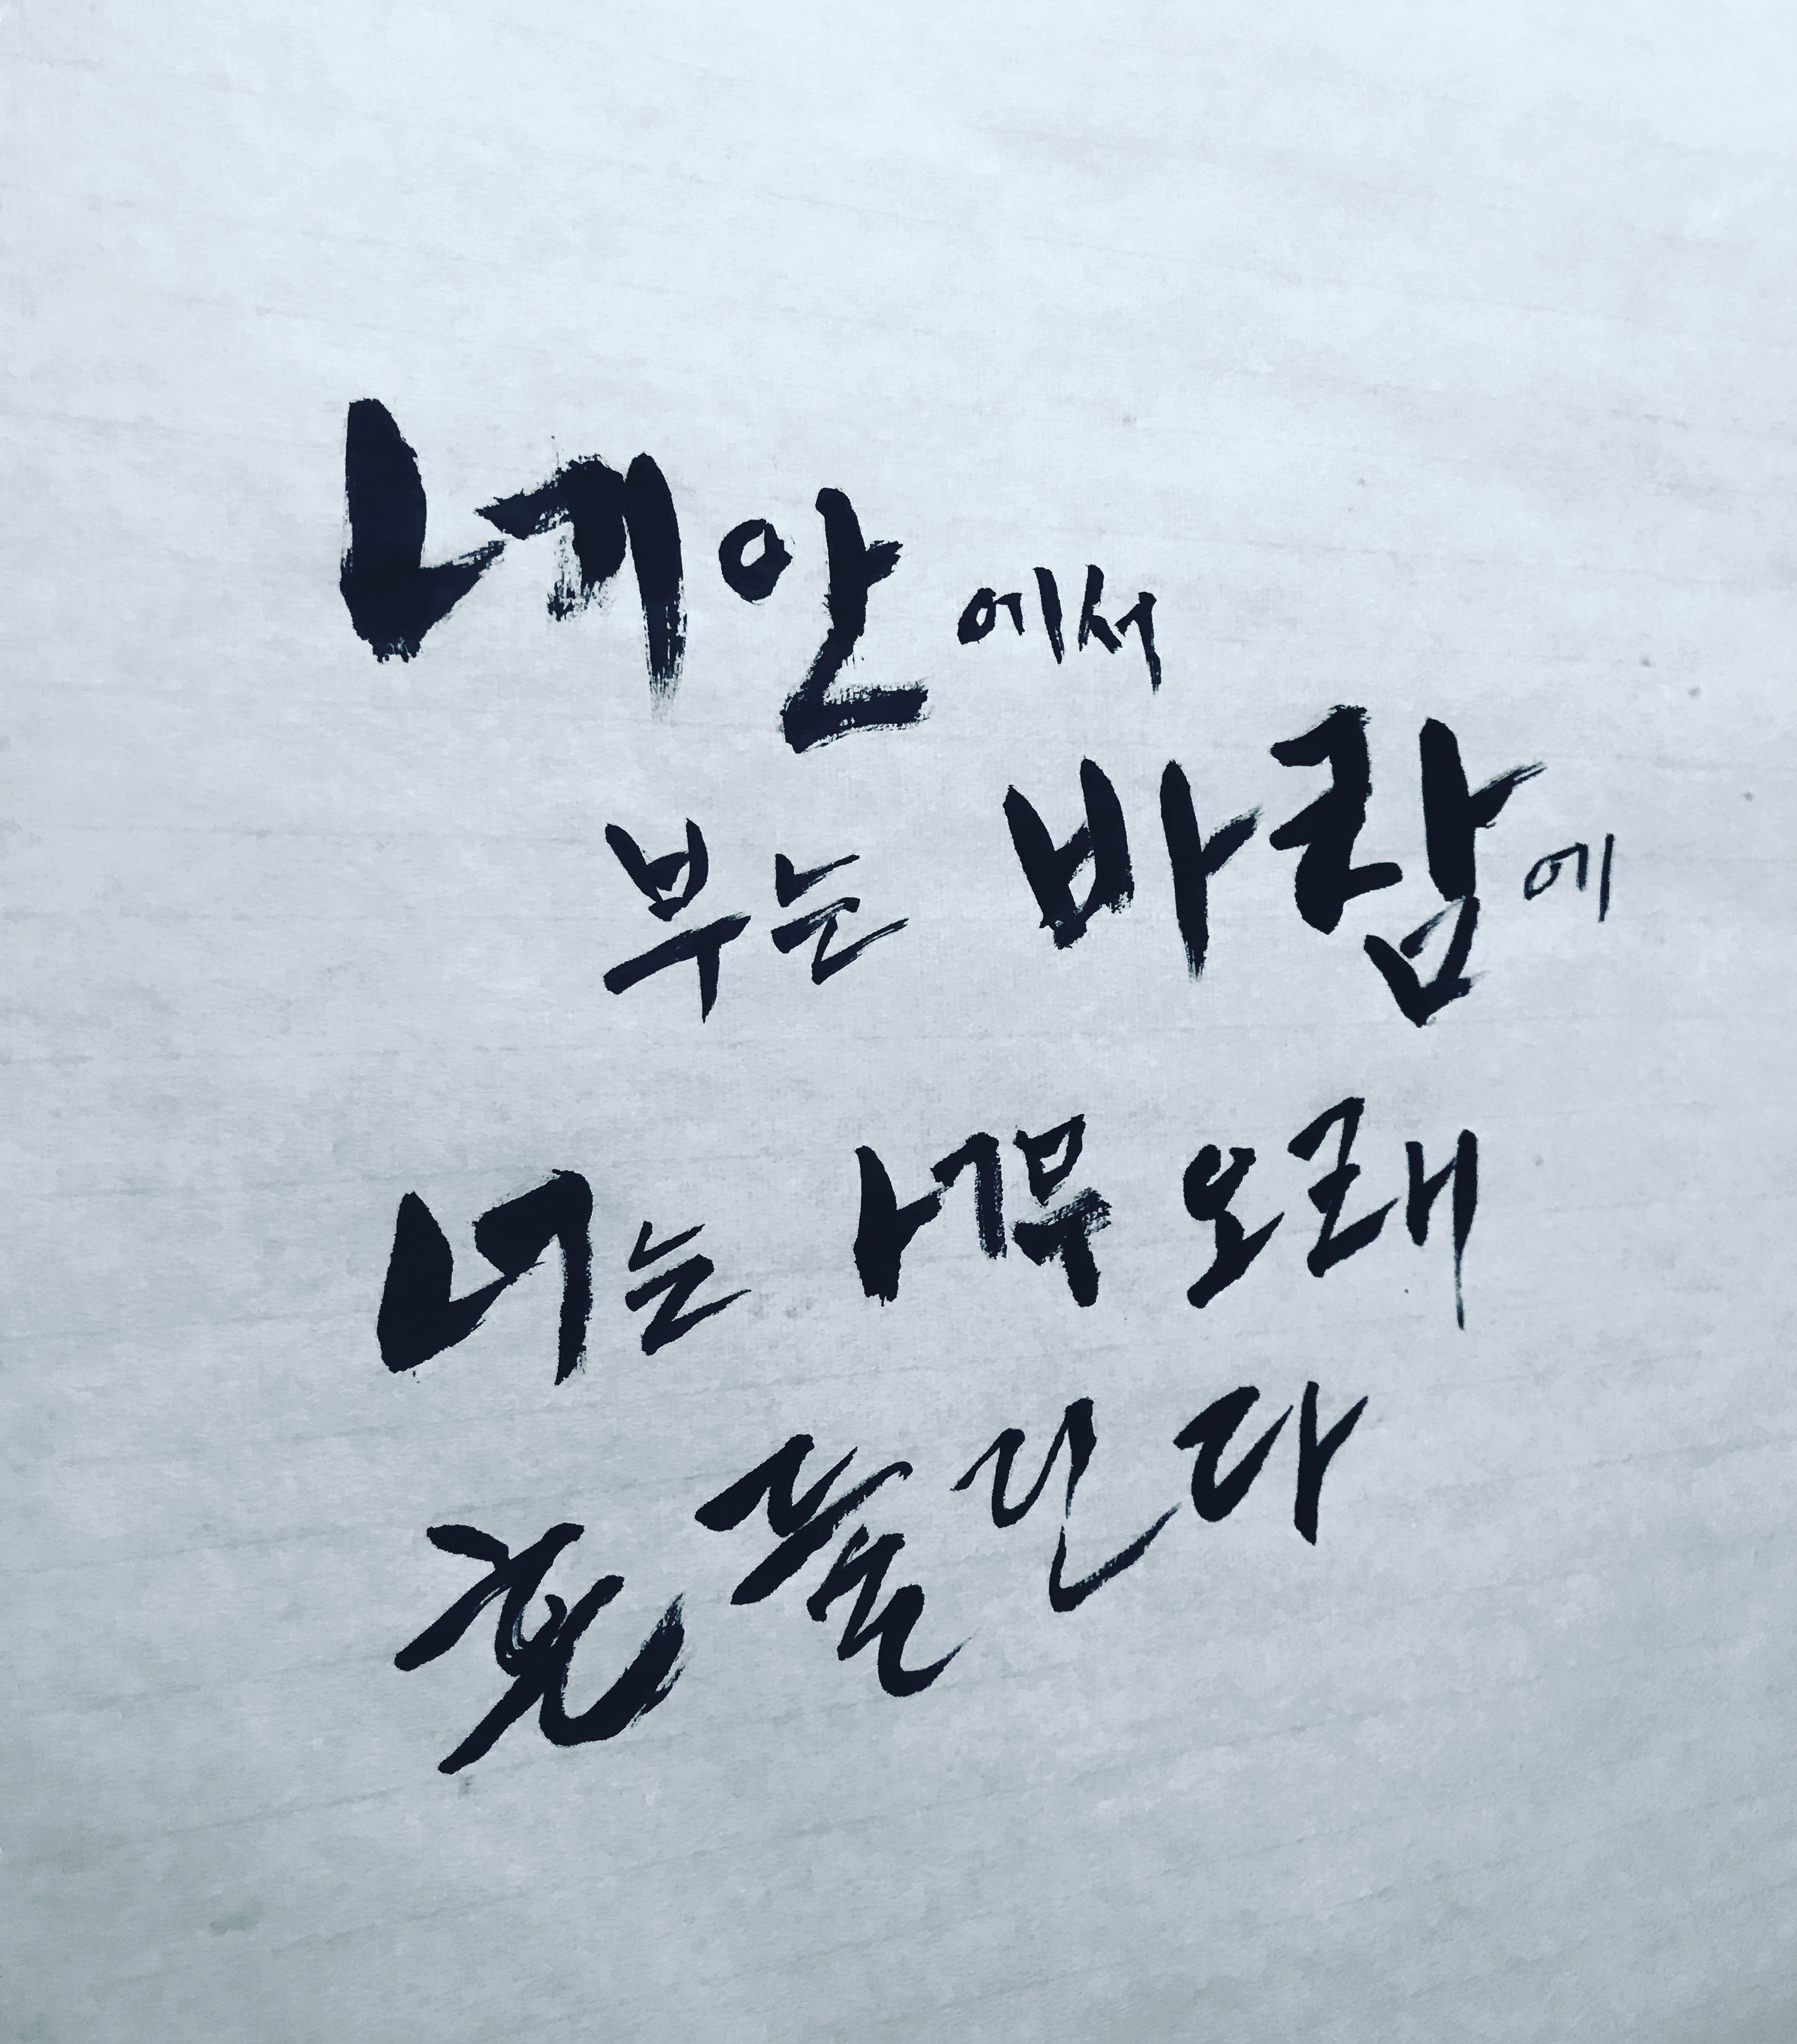 네 안에서
부는 바람에
너는 너무 오래
흔들린다